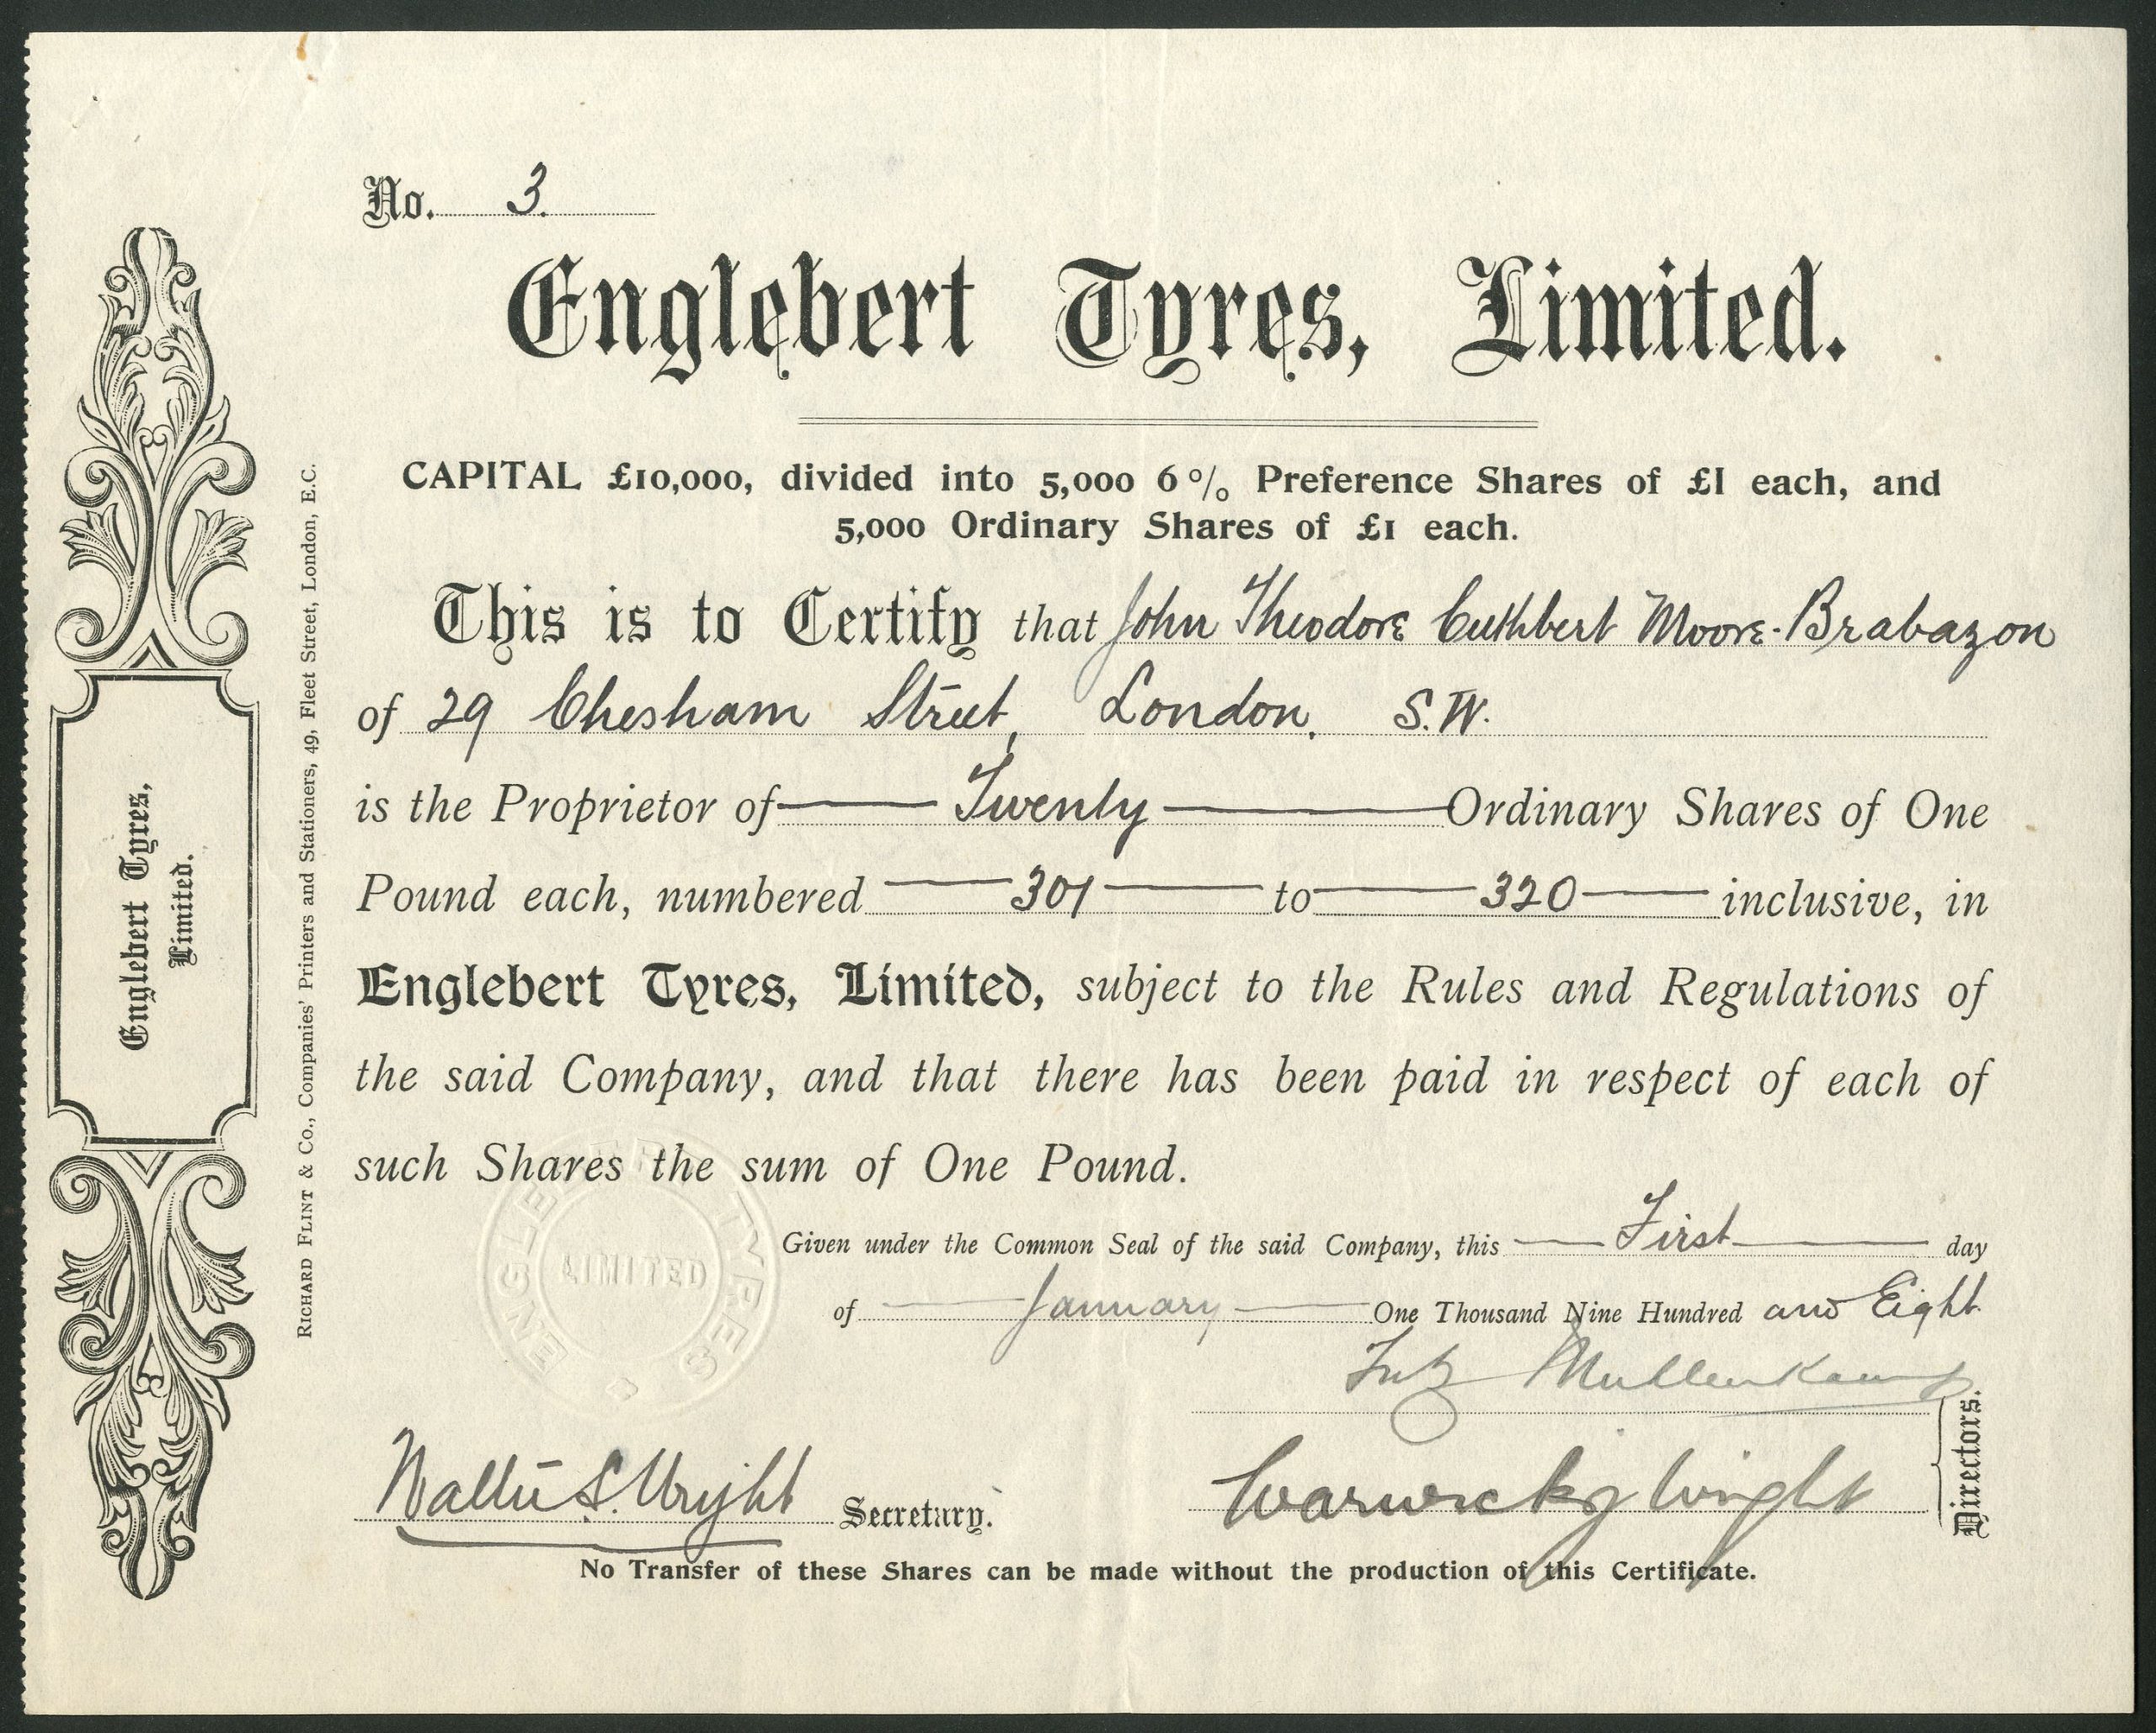 No. 3.
Englebert Tyres, Limited.
CAPITAL £10,000, divided into 5,000 6% Preference Shares of £1 each, and
5,000 Ordinary Shares of £1 each.
This is to Certify that John Theodore Cuthbert Moore-Brabazon
of 29 Chesham Street, London, S.W.
is the Proprietor of Twenty Ordinary Shares of One
Pound each, numbered 301 to 320 inclusive, in
Englebert Tyres, Limited, subject to the Rules and Regulations of
the said Company, and that there has been paid in respect of each of
such Shares the sum of One Pound.
Given under the Common Seal of the said Company, this First day
of January One Thousand Nine Hundred and Eight
Fritz Mullenkamp
Warwick J Wright
Directors.
Walter S. Wright Secretary.
No Transfer of these Shares can be made without the production of this Certificate.
Englebert Tyres,
Limited.
RICHARD FLINT & Co., Companies' Printers and Stationers, 49, Fleet Street, London, E.C.
ENGLEBERT TYRES
LIMITED